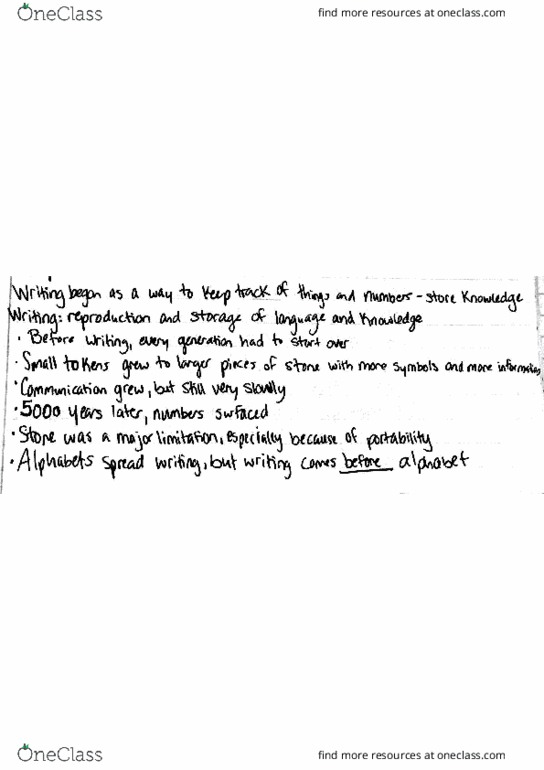 OneClass
find more resources at oneclass.com
Writing began as a way to keep track of things and numbers - store knowledge
Writing: reproduction and storage of language and knowledge
• Before writing, every generation had to start over
• Small tokens grew to larger pieces of stone with more symbols and more information
• Communication grew, but still very slowly
• 5000 years later, numbers surfaced
• Stone was a major limitation, especially because of portability
• Alphabets spread writing, but writing comes before alphabet
OneClass
find more resources at oneclass.com